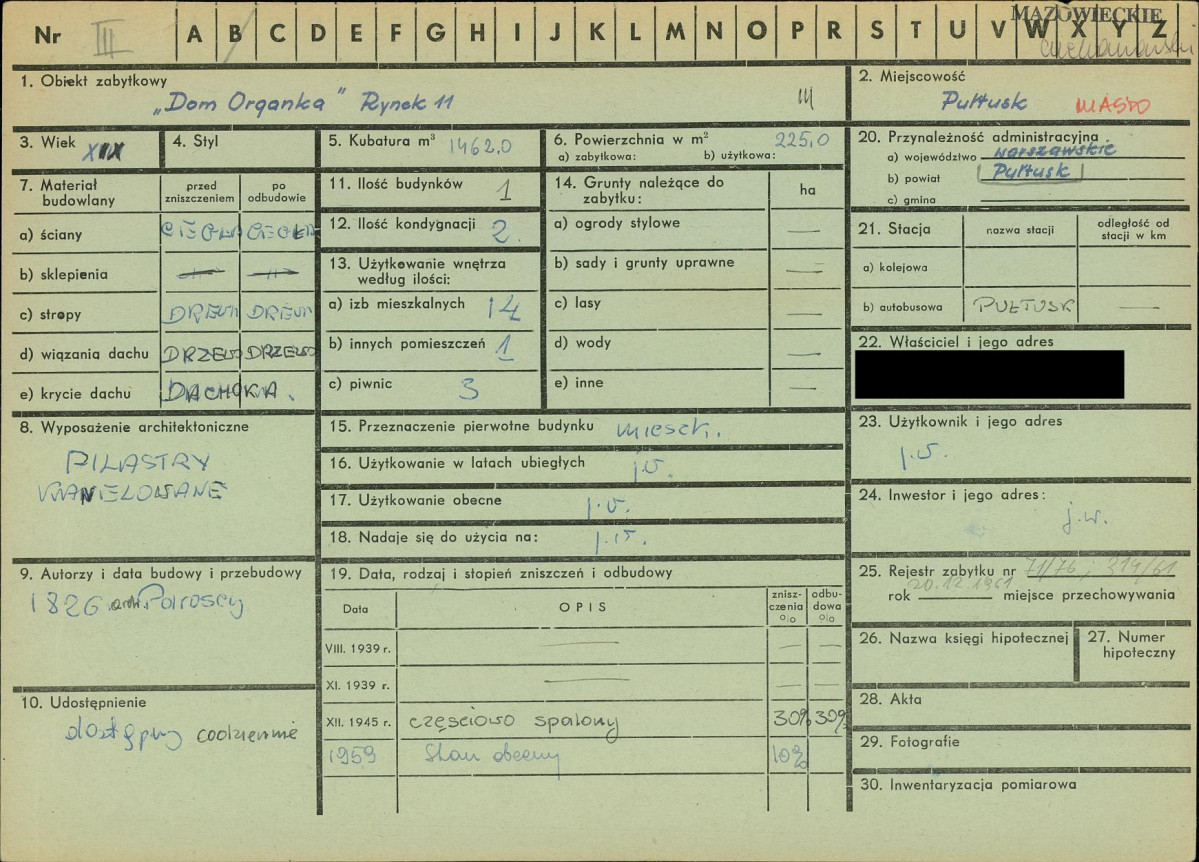 MAZOWIECKIE
Nr III A B C D E F G H I J K L M N O P R S T U V W X Y Z
ciechanowski
1. Obiekt zabytkowy
„Dom Organka" Rynek 11
2. Miejscowość
Pułtusk MIASTO
3. Wiek XIX
4. Styl
5. Kubatura m³ 1462,0
6. Powierzchnia w m² 225,0
a) zabytkowa: b) użytkowa:
20. Przynależność administracyjna
a) województwo warszawskie
b) powiat Pułtusk
c) gmina
7. Materiał budowlany
przed zniszczeniem
po odbudowie
a) ściany CEGŁA CEGŁA
b) sklepienia — —
c) stropy DREWN DREWN
d) wiązania dachu DRZEWO DRZEWO
e) krycie dachu DACHÓWKA
11. Ilość budynków 1
12. Ilość kondygnacji 2.
13. Użytkowanie wnętrza
według ilości:
a) izb mieszkalnych 14
b) innych pomieszczeń 1
c) piwnic 3
14. Grunty należące do
zabytku: ha
a) ogrody stylowe —
b) sady i grunty uprawne —
c) lasy —
d) wody —
e) inne —
21. Stacja
nazwa stacji
odległość od
stacji w km
a) kolejowa
b) autobusowa PUŁTUSK —
22. Właściciel i jego adres
8. Wyposażenie architektoniczne
PILASTRY
KANELOWANE
15. Przeznaczenie pierwotne budynku mieszk.
16. Użytkowanie w latach ubiegłych j.w.
17. Użytkowanie obecne j.w.
18. Nadaje się do użycia na: j.w.
23. Użytkownik i jego adres
j.w.
24. Inwestor i jego adres:
j.w.
9. Autorzy i data budowy i przebudowy
1826 arch.
19. Data, rodzaj i stopień zniszczeń i odbudowy
Data OPIS znisz-
czenia
%
odbu-
dowa
%
VIII. 1939 r. — — —
XI. 1939 r. — — —
XII. 1945 r. częściowo spalony 30% 30%
1959 Stan obecny 10%
10. Udostępnienie
dostępny codziennie
25. Rejestr zabytku nr 71/76; 319/61
rok 20.12.1961 miejsce przechowywania
26. Nazwa księgi hipotecznej
27. Numer
hipoteczny
28. Akta
29. Fotografie
30. Inwentaryzacja pomiarowa